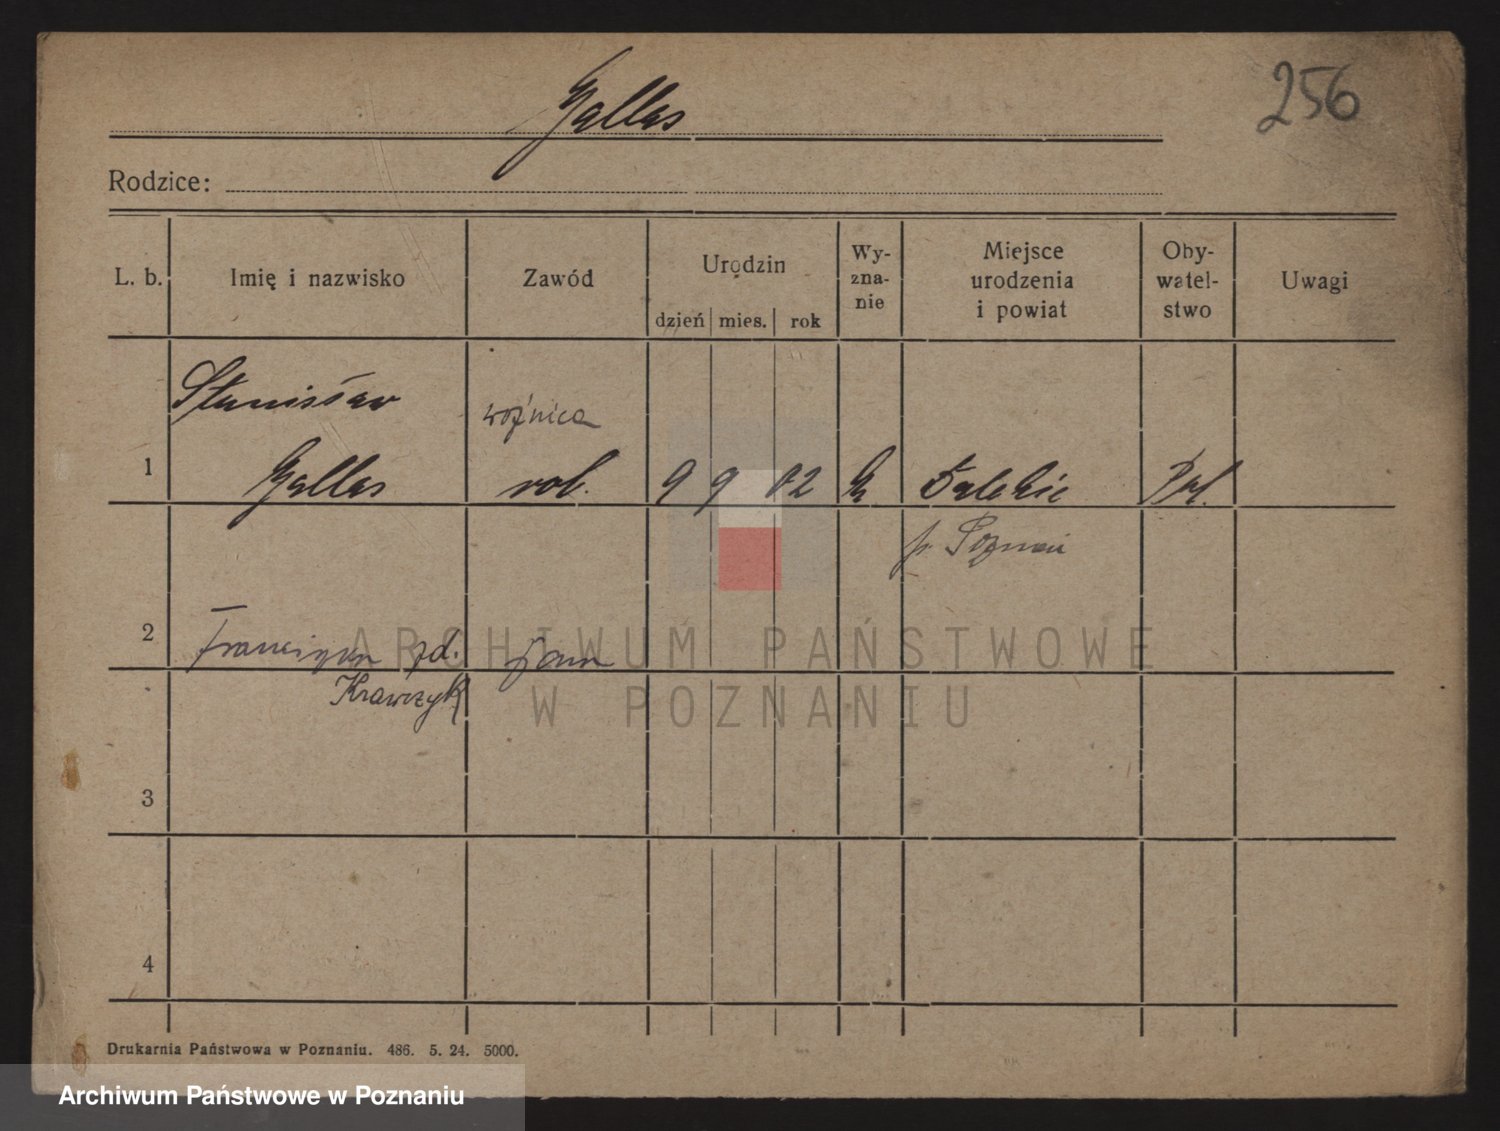 Gallas
256
Rodzice:
L. b. Imię i nazwisko Zawód Urodzin Wy-zna-nie Miejsce urodzenia i powiat Oby-watel-stwo Uwagi
dzień mies. rok
Stanisław woźnica
1 Gallas rob. 9 9 02 Pol.
p. Poznań
2 zd.
Krawczyk
3
4
Drukarnia Państwowa w Poznaniu. 486. 5. 24. 5000.
ARCHIWUM PAŃSTWOWE
W POZNANIU
Archiwum Państwowe w Poznaniu